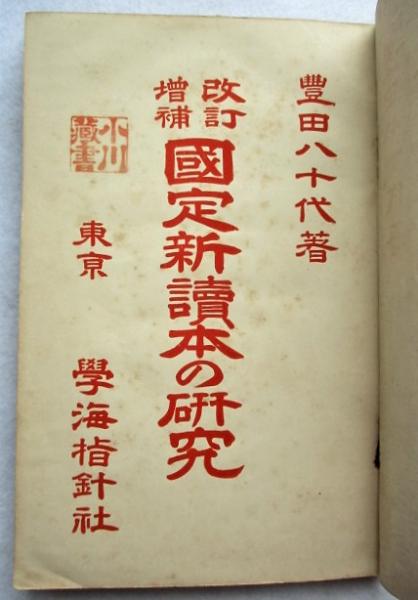 豐田八十代著
改訂
增補
國定新讀本の硏究
小川
藏書
東京
學海指針社